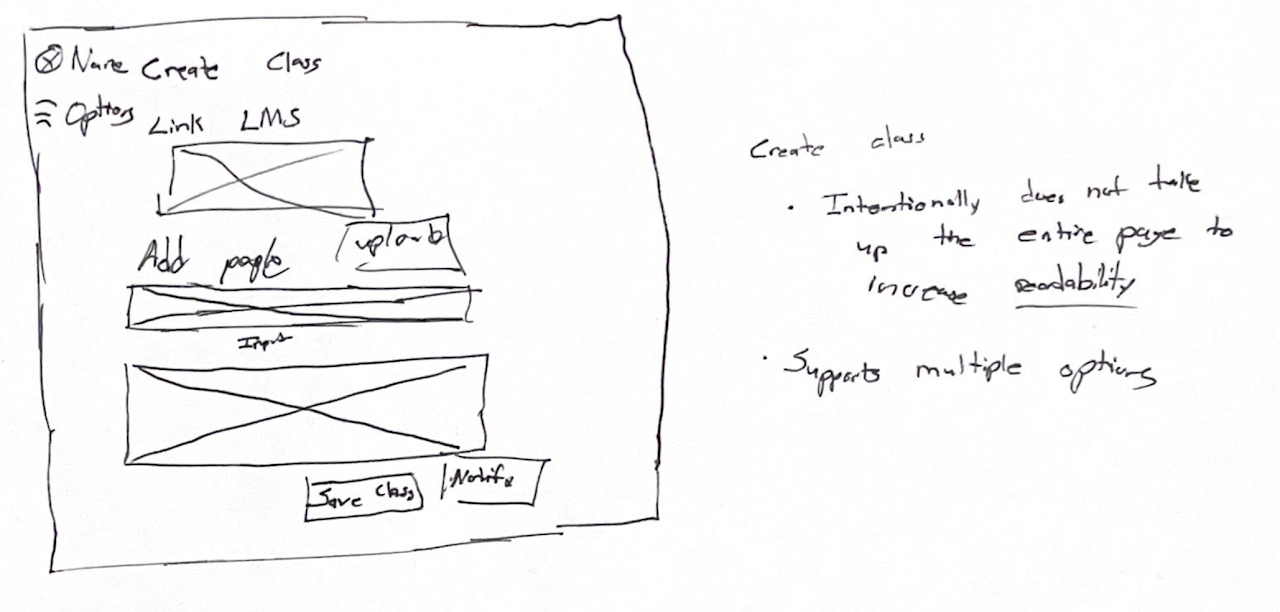 Name Create Class
Options
Link LMS
upload
Add people
Input
Save Class
Notify
Create class
• Intentionally does not take
up the entire page to
increase readability
• Supports multiple options